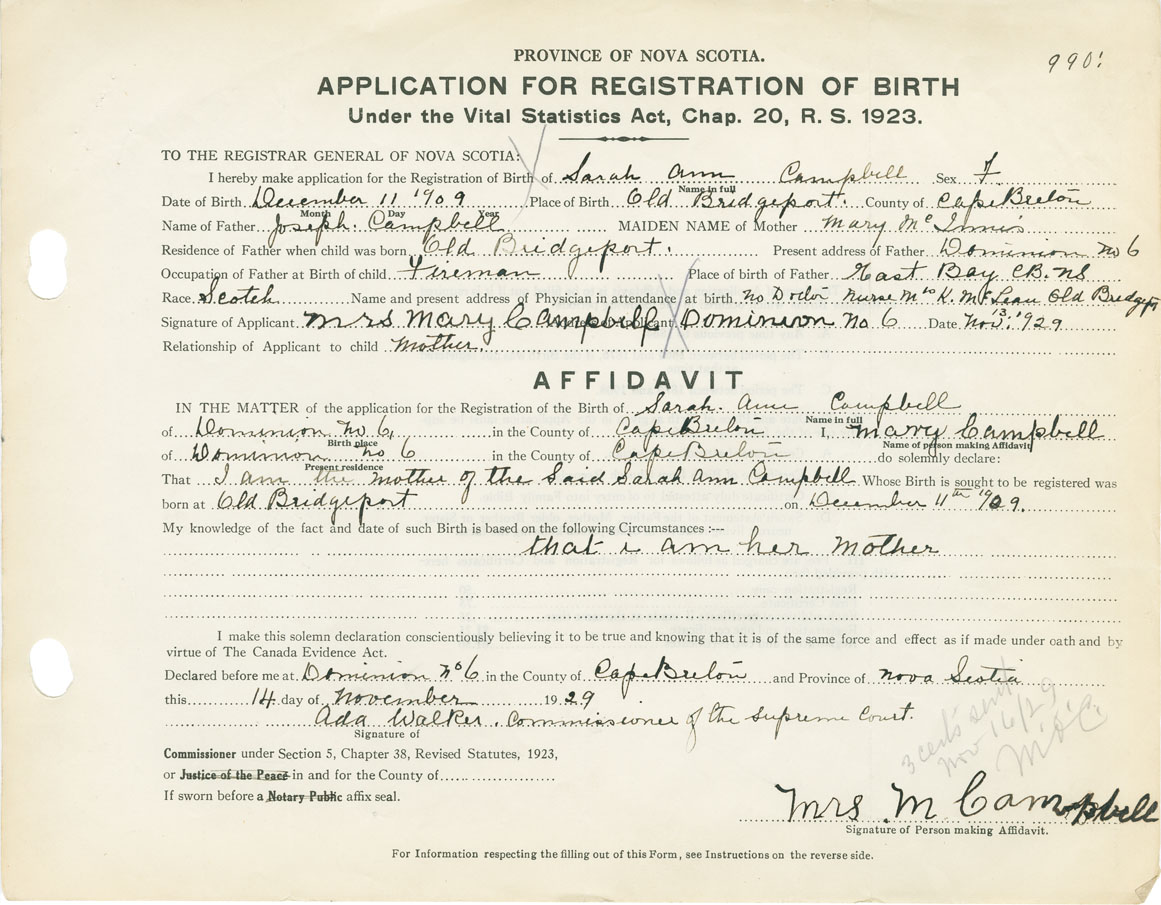 990:
PROVINCE OF NOVA SCOTIA.
APPLICATION FOR REGISTRATION OF BIRTH
Under the Vital Statistics Act, Chap. 20, R. S. 1923.
TO THE REGISTRAR GENERAL OF NOVA SCOTIA:
I hereby make application for the Registration of Birth of Sarah Ann Campbell Sex F
Name in full
Date of Birth December 11 1909 Place of Birth Old Bridgeport. County of Cape Breton
Month Day Year
Name of Father Joseph. Campbell MAIDEN NAME of Mother Mary McInnis
Residence of Father when child was born Old Bridgeport. Present address of Father Dominion No 6
Occupation of Father at Birth of child. Fireman Place of birth of Father East Bay CB. NS
Race. Scotch Name and present address of Physician in attendance at birth. no Doctor nurse Mrs K. McLean Old Bridgept
Signature of Applicant Mrs Mary Campbell Address of Applicant Dominion No 6 Date Nov. 13. 1929
Relationship of Applicant to child Mother.
AFFIDAVIT
IN THE MATTER of the application for the Registration of the Birth of Sarah. Ann Campbell
Name in full
of Dominion. No 6, in the County of Cape Breton I, Marry Campbell
Birth place Name of person making Affidavit
of Dominion No 6 in the County of Cape Breton do solemnly declare:
Present residence
That I am the mother of the Said Sarah Ann Campbell Whose Birth is sought to be registered was
born at Old Bridgeport on December 11th 1909.
My knowledge of the fact and date of such Birth is based on the following Circumstances :---
that i am her mother
I make this solemn declaration conscientiously believing it to be true and knowing that it is of the same force and effect as if made under oath and by
virtue of The Canada Evidence Act.
Declared before me at Dominion No 6 in the County of Cape Breton and Province of Nova Scotia
this 14 day of November 1929
Ada Walker. Commissioner of the Supreme Court.
Signature of
3 certs sent
Nov 16/29
Commissioner under Section 5, Chapter 38, Revised Statutes, 1923,
or Justice of the Peace in and for the County of
If sworn before a Notary Public affix seal.
Mrs. M Campbell
Signature of Person making Affidavit.
For Information respecting the filling out of this Form, see Instructions on the reverse side.